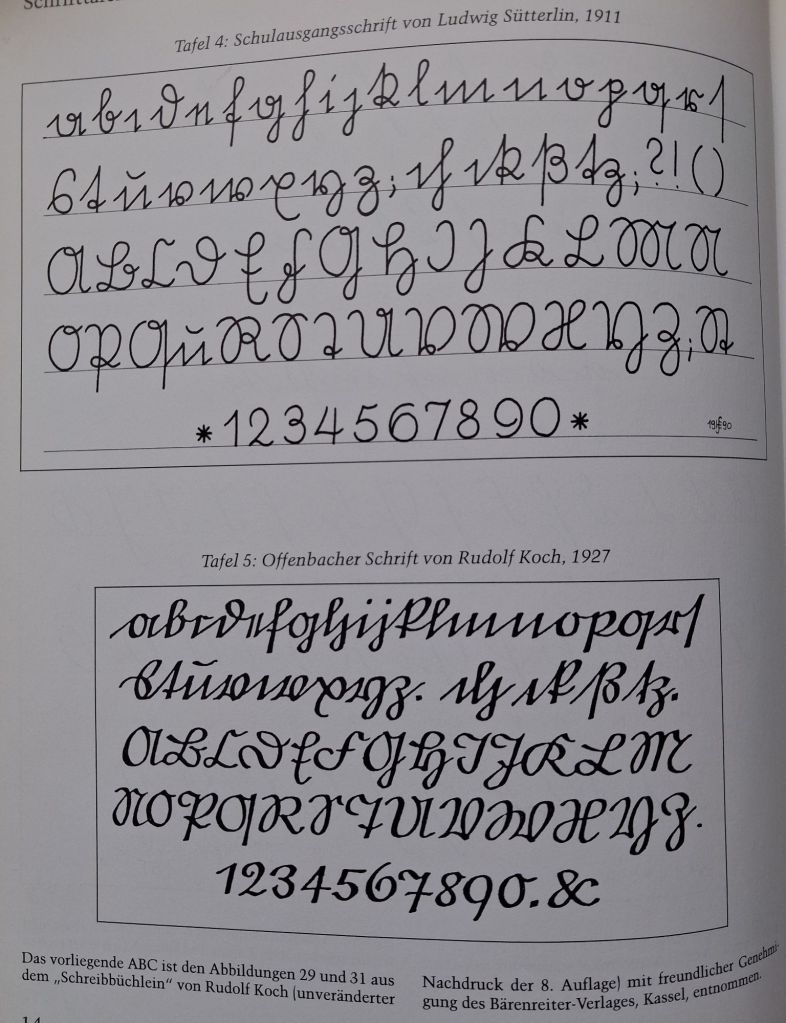 Tafel 4: Schulausgangsschrift von Ludwig Sütterlin, 1911
a b c d e f g h i j k l m n o p q r ſ
s t u v w x y z ; ch ck ß tz ; ? ! ( )
A B C D E F G H I J K L M N
O P Qu R S T U V W X Y Z ; St
* 1 2 3 4 5 6 7 8 9 0 *
Tafel 5: Offenbacher Schrift von Rudolf Koch, 1927
a b c d e f g h i j k l m n o p q r ſ
s t u v w x y z . ch ck ß tz .
A B C D E F G H I J K L M
N O P Q R S T U V W X Y Z .
1 2 3 4 5 6 7 8 9 0 . &
Das vorliegende ABC ist den Abbildungen 29 und 31 aus
dem „Schreibbüchlein“ von Rudolf Koch (unveränderter
Nachdruck der 8. Auflage) mit freundlicher Genehmi-
gung des Bärenreiter-Verlages, Kassel, entnommen.